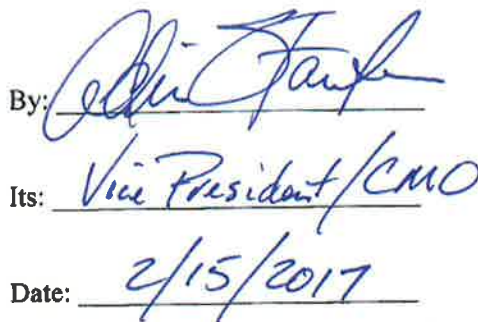 By:
Its: Vice President/CMO
Date: 2/15/2017